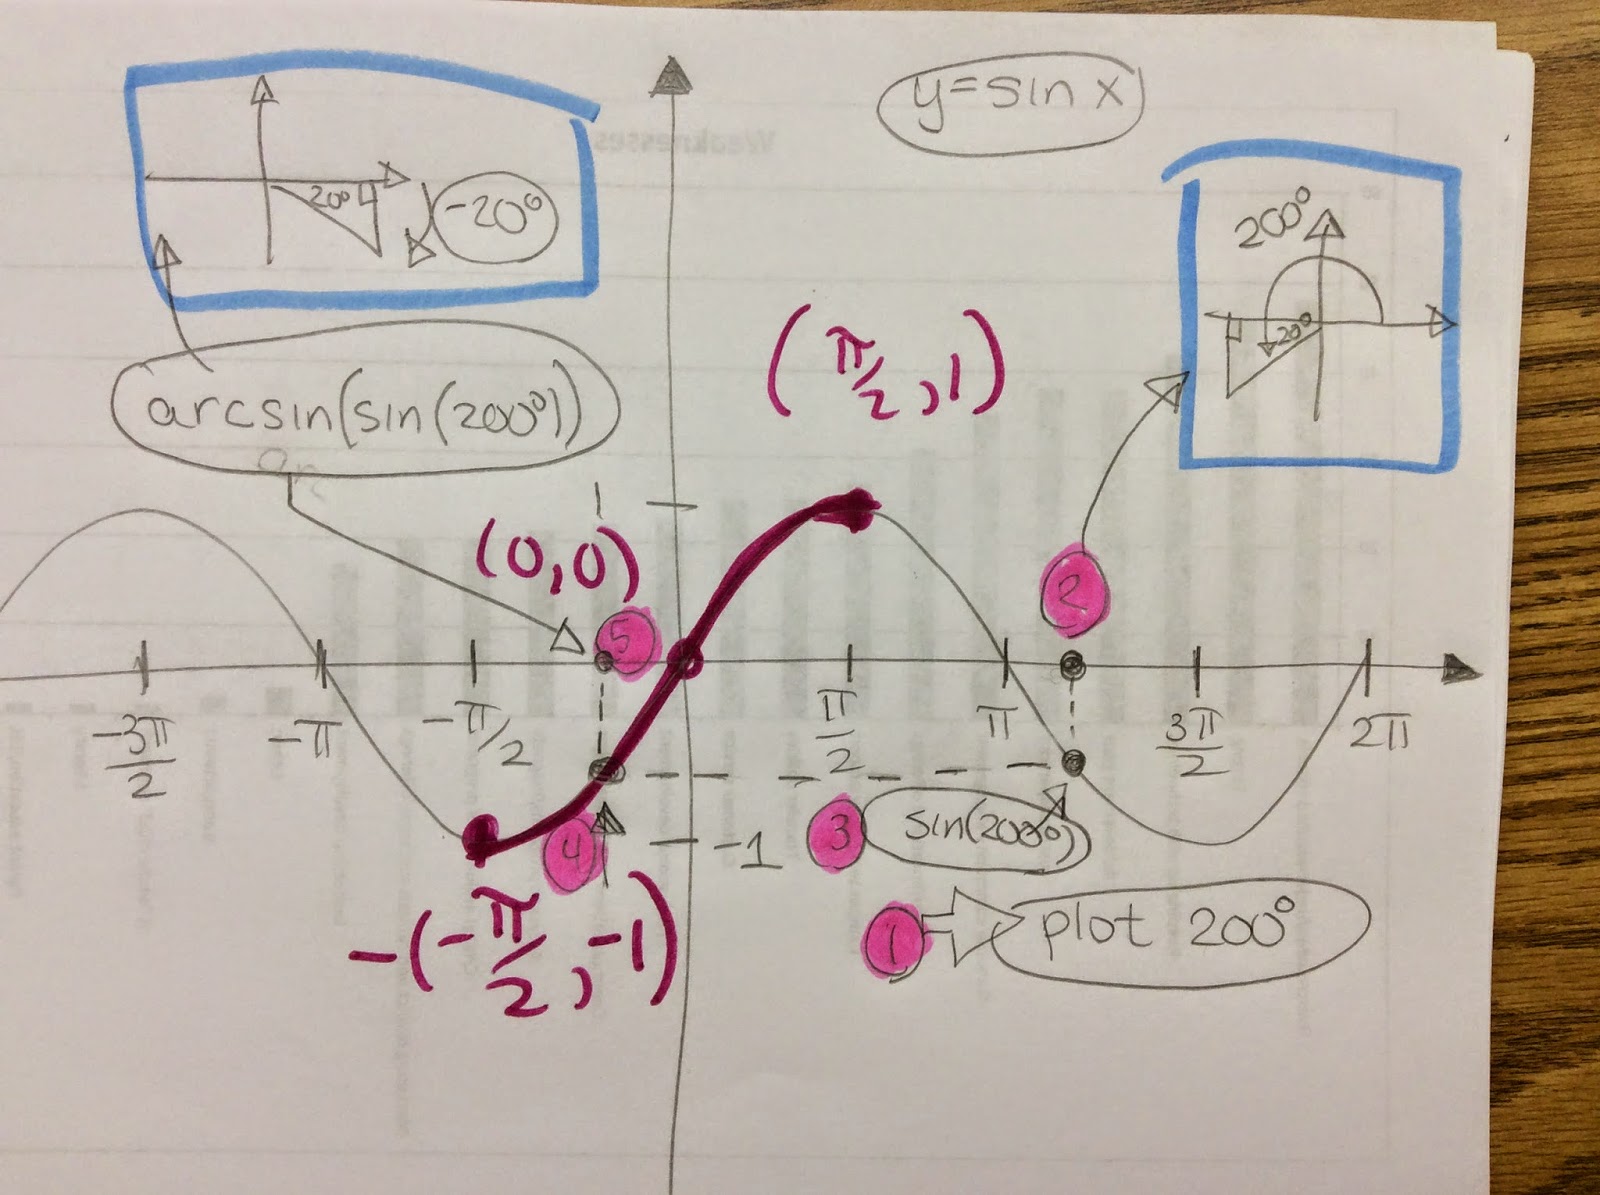 y=sin x
Weaknesses
200°
20°
-20°
200°
20°
arcsin(sin(200°))
(π/2, 1)
1
(0,0)
5
2
-3π/2
-π
-π/2
π/2
π
3π/2
2π
4
-1
3
sin(200°)
-(-π/2, -1)
1
plot 200°